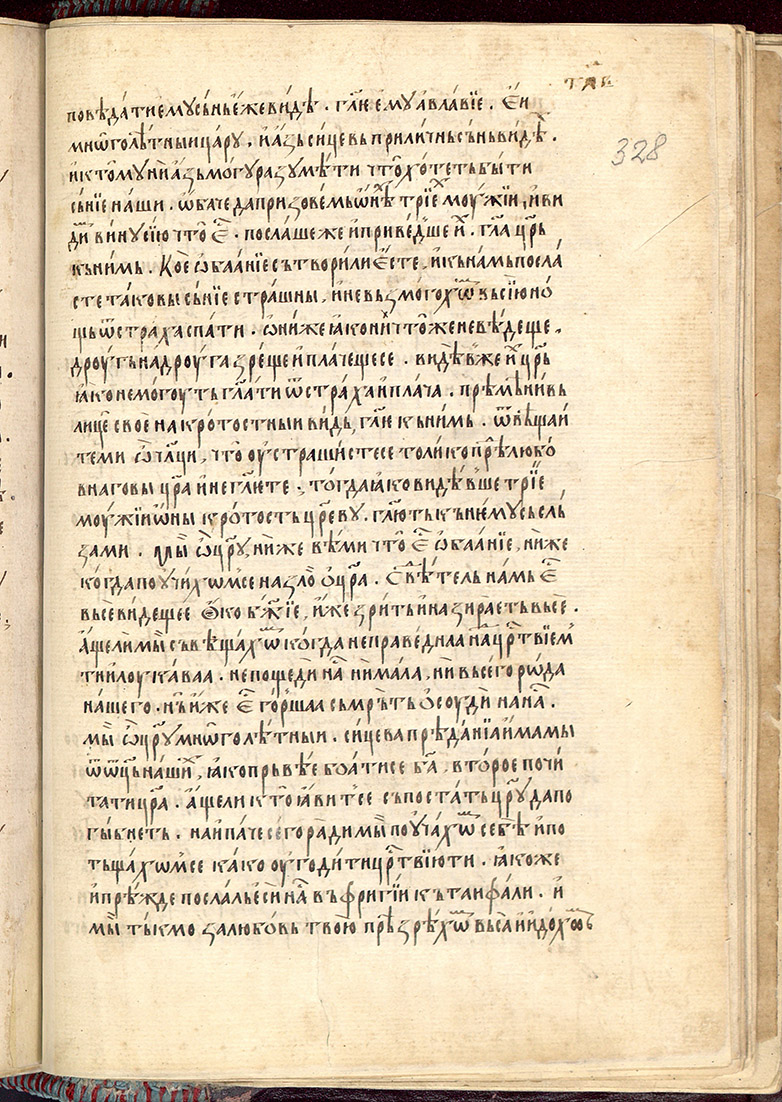 тл҃в
328
повѣ́дати емꙋ сьнь е҆́же ви́дѣ . гл҃ѥ е҆мꙋ а҆влавїе . Е҆и
мнѡголѣ́тныи ца́рꙋ , и҆ а҆́зь сицевь прили́чнь сьнь ви́дѣ .
и҆ к томꙋ ни а҆́зь могꙋ разꙋмѣ́ти что̀ хо́теть бы́ти
сь́нїе на́ши . ѡ҆ба́че да призове́мь ѡ҆нѣ́х трїе́х моу́жїи , и ви
ди́м винꙋ сїю что̀ е҆с . посла́ше же и҆ приве́дше и҆х . гл҃а цр҃ь
кь ни́мь . Ко́е ѡ҆баа́нїе сьтвори́ли е҆́сте , и҆ кь на́мь посла́
сте та́ковы сь́нїе стра́шны , и҆ не вьзмого́хѡм вь сїю но́
щь ѿ стра́ха спа́ти . ѡ҆ни́ же ꙗ҆ко ничто́же не вѣ́деще ,
дроу́гь на дроу́га зре́ще и҆ пла́чещесе . ви́дѣв же и҆х цр҃ь
ꙗ҆ко не мо́гоуть гл҃ати ѿ стра́ха и҆ пла́ча . прѣмѣни́вь
лицѐ своѐ на кро́тостныи ви́дь , гл҃ѥ кь ни́мь . ѿвѣща́и
те ми ѽ ча́дци , что̀ оу҆страши́стесе то́лико прѣлюбо́
внаго вы цр҃а и҆ не гл҃ѥте . тогда̀ ꙗ҆ко ви́дѣвше трїе́
моу́жїи ѡ҆ны кро́тость цр҃евꙋ . гл҃ють кь нѐмꙋ сь сль
за́ми . Мы̀ ѽ цр҃ꙋ , ниже вѣ́ми что̀ е҆с ѡ҆баа́нїе , ни́же
когда̀ поучи́хѡмсе на ѕло̀ ѽ цр҃а . Свѣ́тель на́мь е҆с
вьсеви́дещее ѻ҆́ко бж҃їе , и҆́же зри́ть и҆ назира́еть вьсѐ .
а҆́ще ли мы̀ сьвѣща́хѡм когда̀ непра́ведна на црⷭ҇твїе м
ти и҆ лоука́ваа . не поще́ди на́с ни ма́ла , ни вьсего̀ рѡ́да
на́шего . нь и҆́же е҆с го́ршаа сьмрь́ть ѻ҆соуди́ на на́с .
мы̀ ѽ цр҃ꙋ мнѡголѣ́тныи . си́цева прѣда́нїа и҆́мамы
ѿ ѿць на́ших , ꙗ҆ко прь́вѣе боа́тисе ба҃ , вто́рое почи
та́ти цр҃а . а҆́ще ли кто̀ ꙗ҆ви́тсе сьпоста́ть цр҃ꙋ да по
гы́бнеть . наи҆па́че сего ра́ди мы̀ поуча́хѡм себѐ и҆ по
тьща́хѡмсе ка́ко оу҆годи́ти црⷭ҇твїю ти . ꙗ҆́коже
и҆ прѣ́жде посла́ль е҆си на́с въ фриги́и к таифа́ли . и҆
мы̀ ты́кмо за любо́вь твою̀ прѣзрѣ́хѡм вьса̀ и҆ и҆до́хѡм